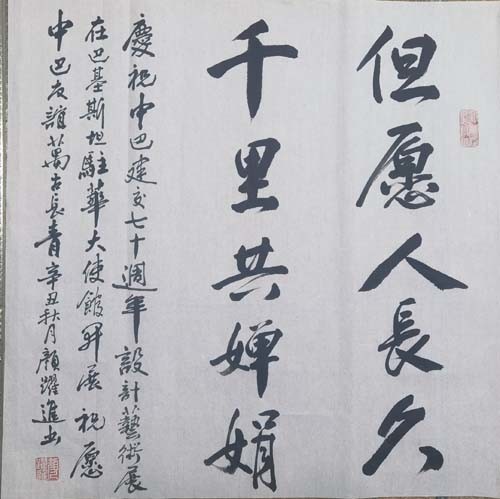 但愿人長久
千里共婵娟
慶祝中巴建交七十週年設计藝術展
在巴基斯坦駐華大使館开展祝愿
中巴友誼萬古長青辛丑秋月顏躍進书